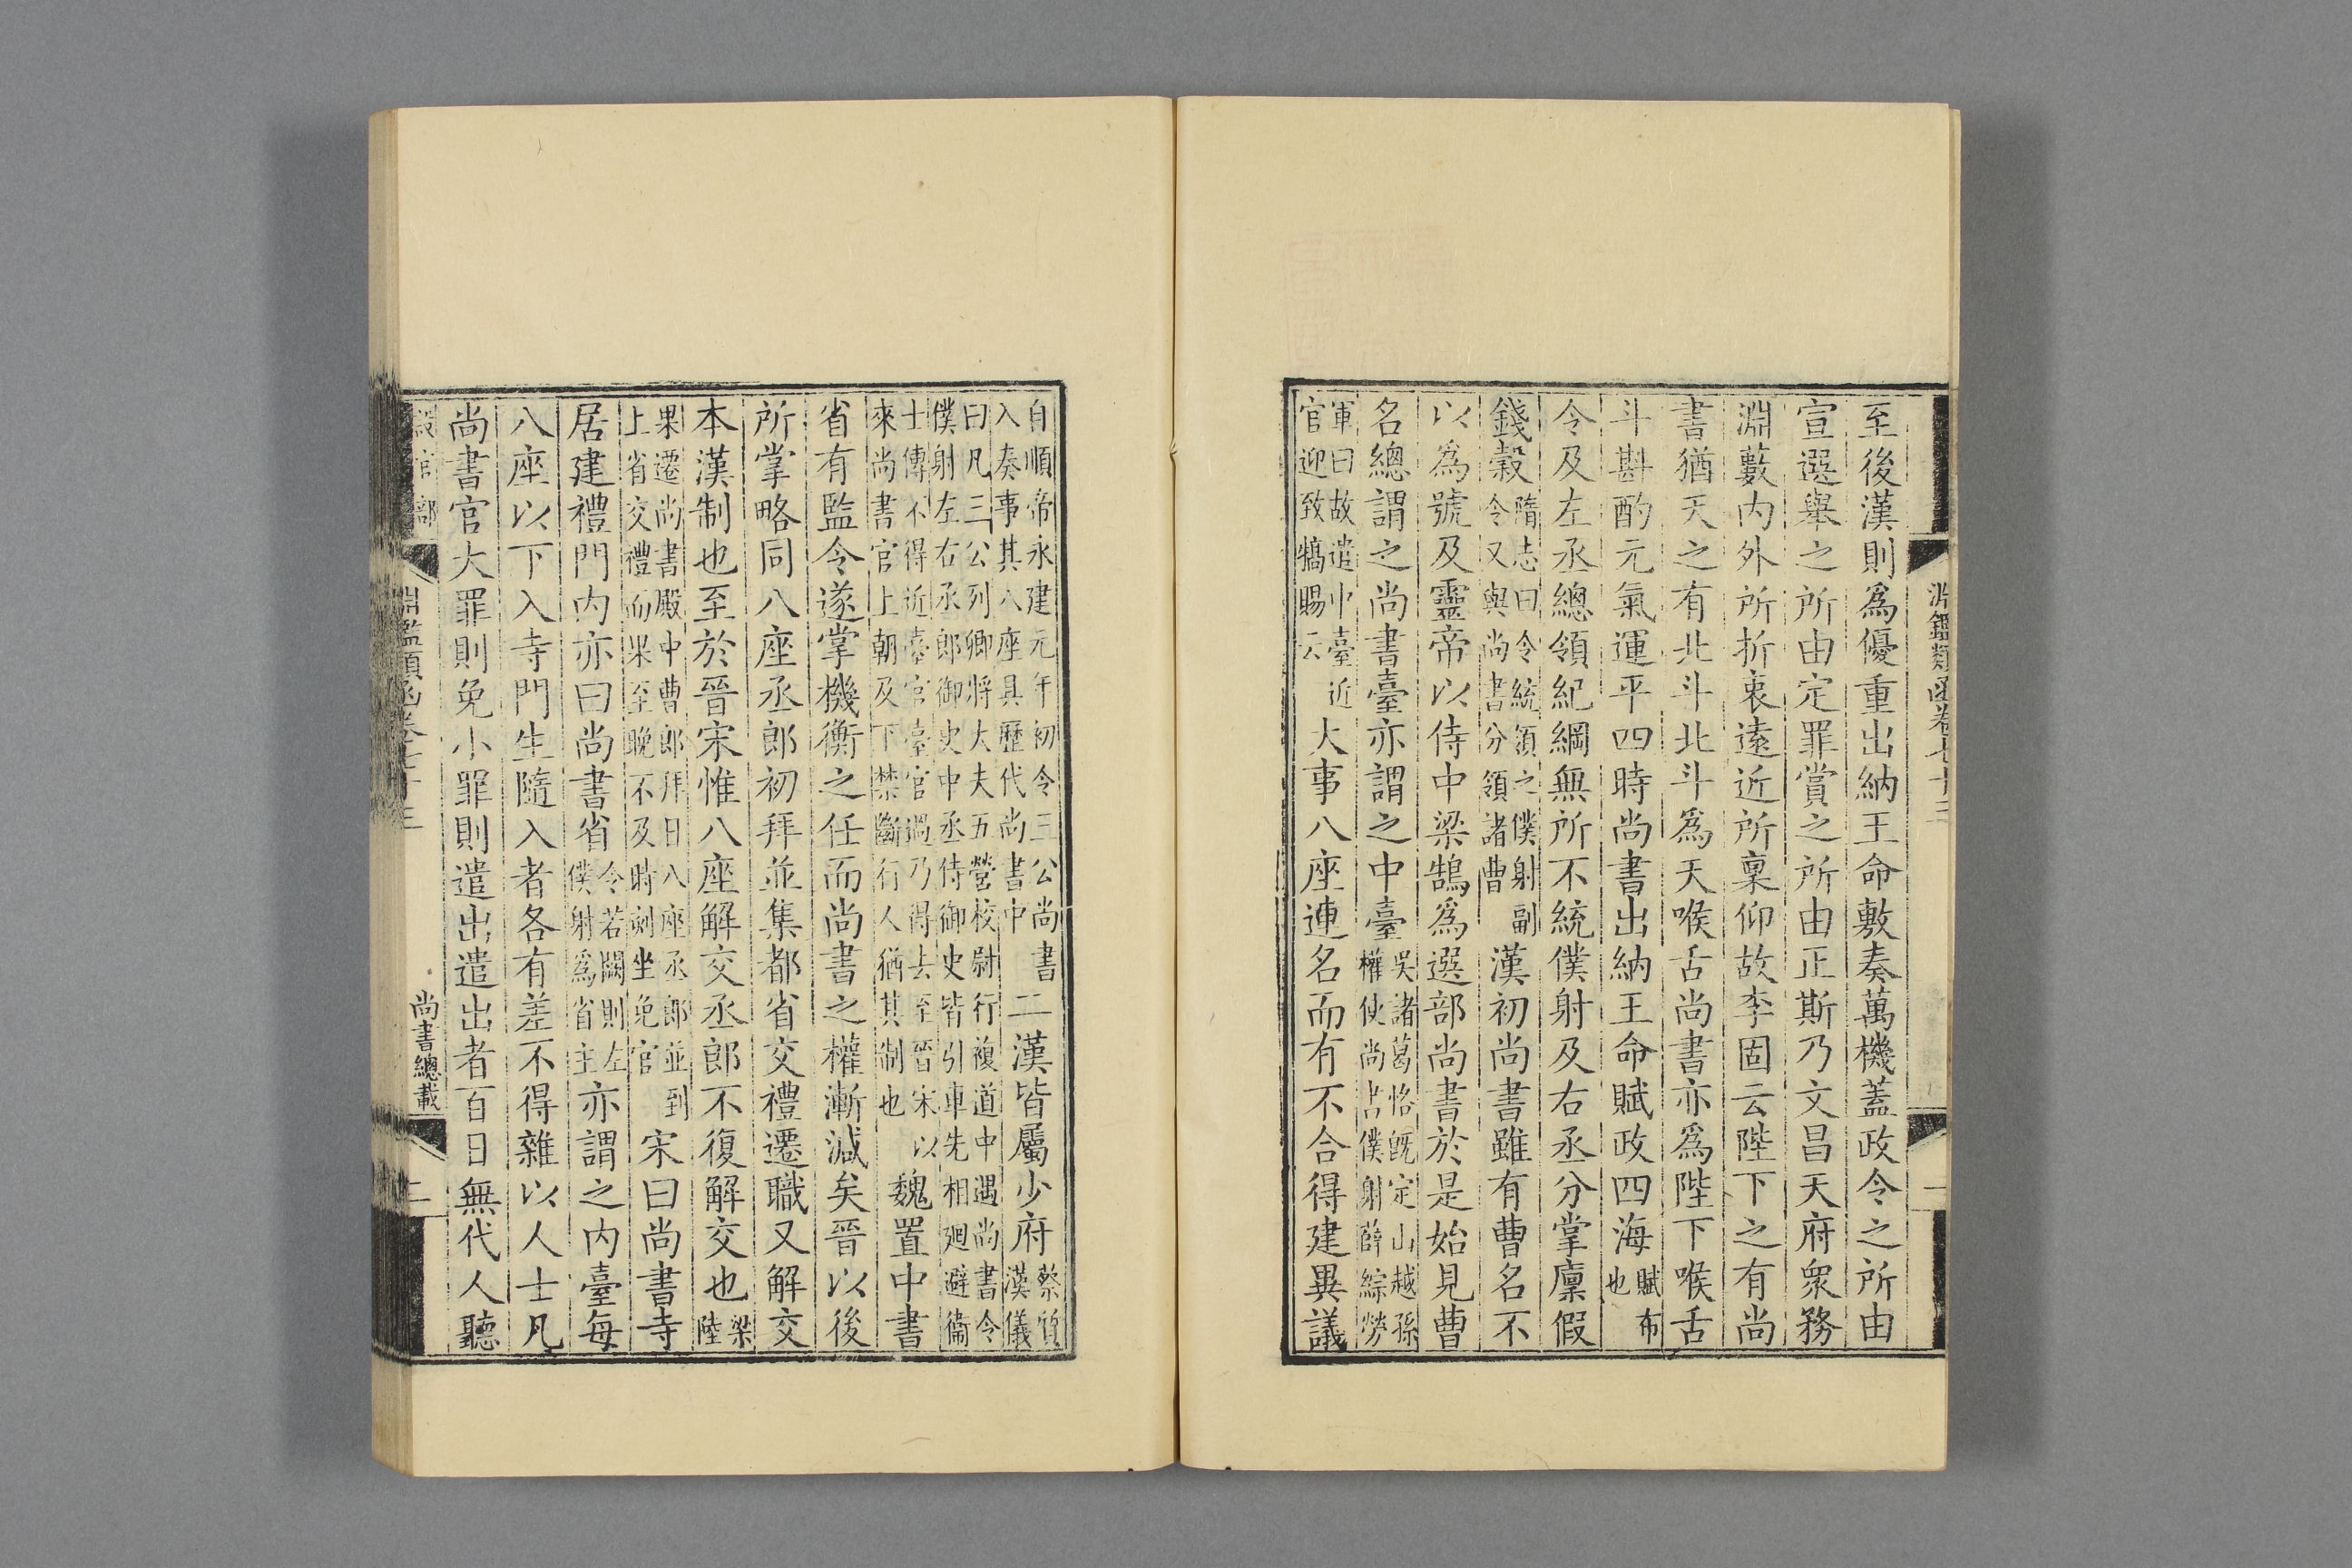 淵鑑類函卷七十三
一
至後漢則爲優重出納王命敷奏萬機蓋政令之所由
宣選舉之所由定罪賞之所由正斯乃文昌天府衆務
淵藪内外所折衷遠近所稟仰故李固云陛下之有尚
書猶天之有北斗北斗爲天喉舌尚書亦爲陛下喉舌
斗斟酌元氣運平四時尚書出納王命賦政四海賦布也
令及左丞總領紀綱無所不統僕射及右丞分掌廩假
錢穀隋志曰令統領之僕射副令又與尚書分領諸曹漢初尚書雖有曹名不
以爲號及靈帝以侍中梁鵠爲選部尚書於是始見曹
名總謂之尚書臺亦謂之中臺吳諸葛恪旣定山越孫權使尚書僕射薛綜勞
軍曰故遣中臺近官迎致犒賜云大事八座連名而有不合得建異議
自順帝永建元年初令三公尚書入奏事其八座具歷代尚書中二漢皆屬少府蔡質漢儀
曰凡三公列卿將大夫五營校尉行複道中遇尚書令僕射左右丞郎御史中丞侍御史皆引車先相廻避衞
士傳不得近臺官臺官過乃得去至晉宋以來尚書官上朝及下禁斷行人猶其制也魏置中書
省有監令遂掌機衡之任而尚書之權漸減矣晉以後
所掌略同八座丞郎初拜並集都省交禮遷職又解交
本漢制也至於晉宋惟八座解交丞郎不復解交也梁陸
果遷尚書殿中曹郎拜日八座丞郎並到上省交禮而果至晚不及時刻坐免官宋曰尚書寺
居建禮門内亦曰尚書省令若闕則左僕射爲省主亦謂之内臺每
八座以下入寺門生隨入者各有差不得雜以人士凡
尚書官大罪則免小罪則遣出遣出者百日無代人聽
設官部
淵鑑類函卷七十三
尚書總載
二